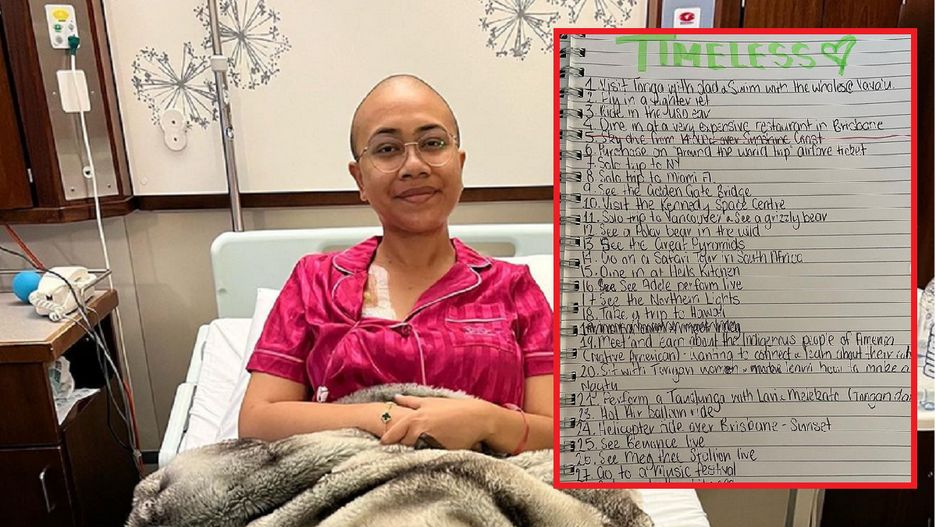 TIMELESS
1. Visit Tonga with dad & swim with the whales Vava'u.
2. Fly in a fighter jet
3. Ride in the
4. Dine in at a very expensive restaurant in Brisbane
5. Sky dive from over Sunshine Coast
6. Purchase an "Around the world trip" airfare ticket
7. Solo trip to NY
8. Solo trip to Miami Fl
9. See the Golden Gate Bridge
10. Visit the Kennedy Space Centre
11. Solo trip to Vancouver & See a grizzly bear
12. See a Polar bear in the wild
13. See the Great Pyramids
14. Go on a Safari Tour in South Africa
15. Dine in at Hells Kitchen
16. See See Adele perform live
17. See the Northern Lights
18. Take a trip to Hawaii
19. Meet and learn about the Indigenous people of America
(Native American) - wanting to connect & learn about their
20. Sit with Tongan women learn how to make a
Ngatu
Perform a Tau'olunga with
23. Hot Air balloon ride
24. Helicopter ride over Brisbane - Sunset
25. See Beyonce live
26. See Meg thee Stallion live
27. Go to a music festival